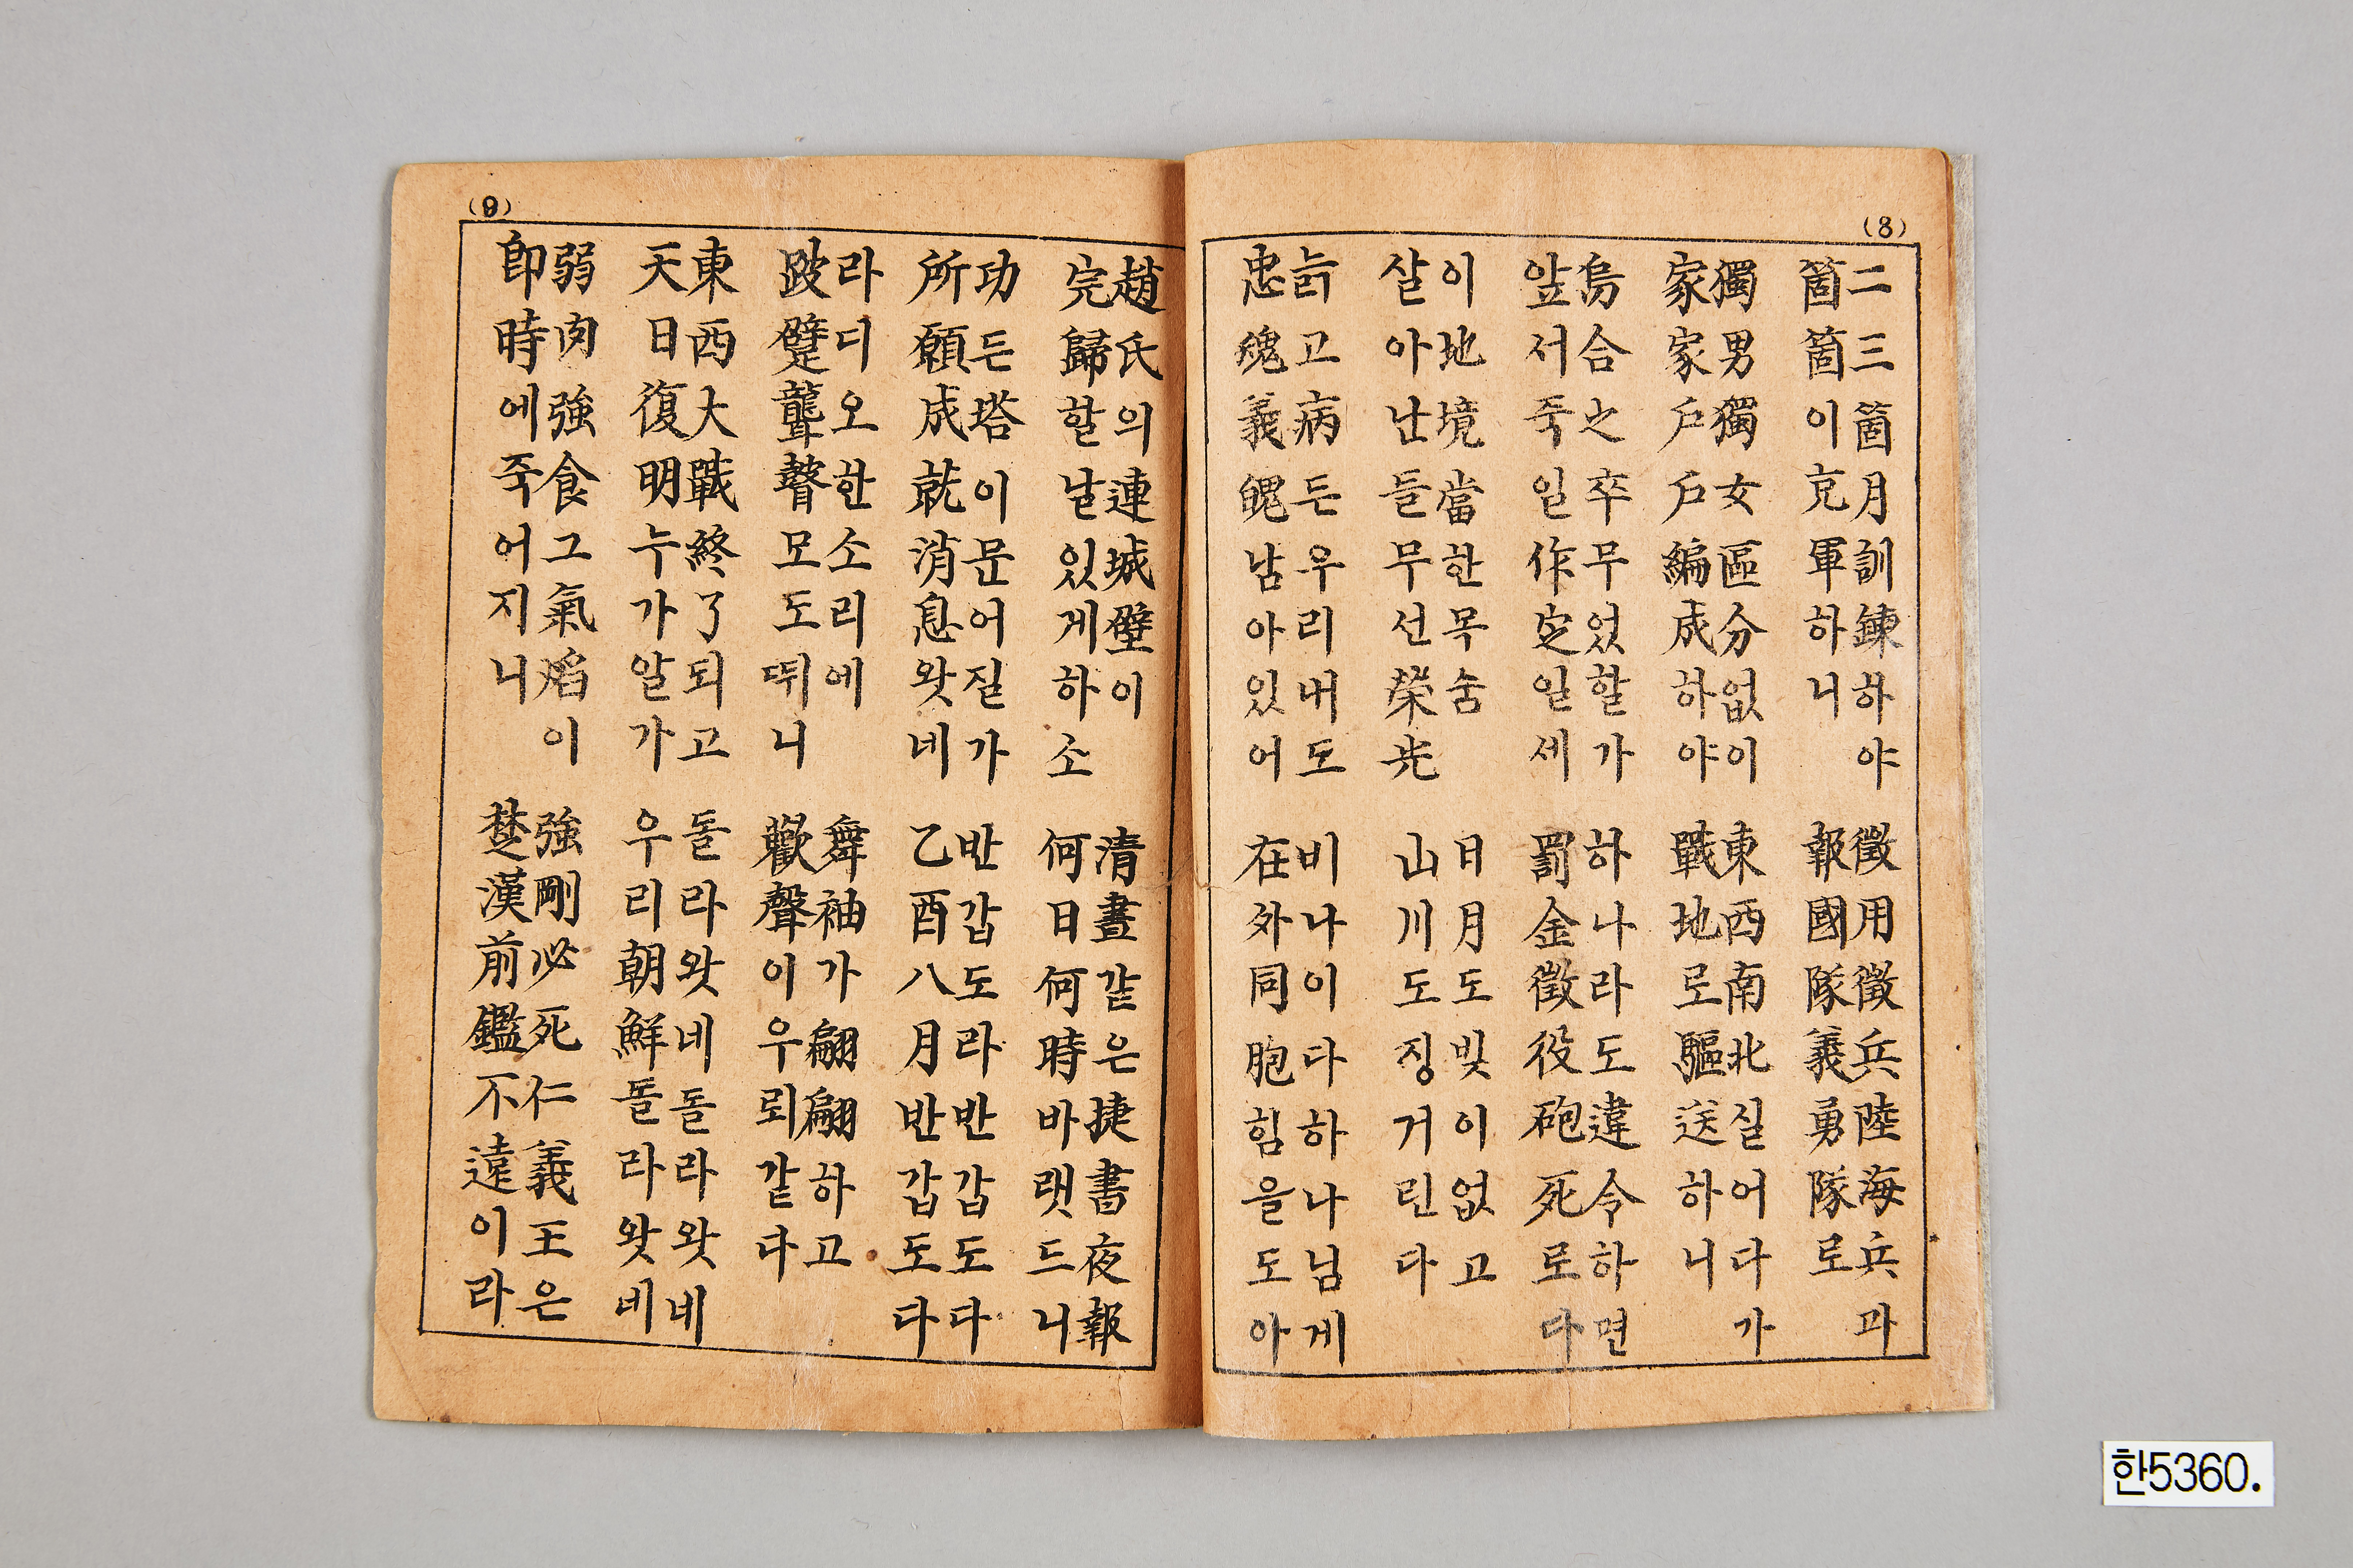 (8)
二三箇月訓鍊하야
箇箇이充軍하니
徵用徵兵陸海兵과
報國隊義勇隊로
獨男獨女區分없이
家家戶戶編成하야
東西南北실어다가
戰地로驅送하니
烏合之卒무었할가
앞서죽일作定일세
하나라도違令하면
罰金徵役砲死로다
이地境當한목숨
살아난들무선榮光
日月도빛이없고
山川도징거린다
늙고病든우리내도
忠魂義魄남아있어
비나이다하나님게
在外同胞힘을도아
(9)
趙氏의連城璧이
完歸할날있게하소
清晝같은捷書夜報
何日何時바랫드니
功든塔이문어질가
所願成就消息왓네
반갑도라반갑도다
乙酉八月반갑도다
라디오한소리에
跛躄聾瞽모도뛰니
舞袖가翩翩하고
歡聲이우뢰같다
東西大戰終了되고
天日復明누가알가
돌라왓네돌라왓네
우리朝鮮돌라왓네
弱肉強食그氣焰이
即時에죽어지니
強剛必死仁義王은
楚漢前鑑不遠이라
한5360.